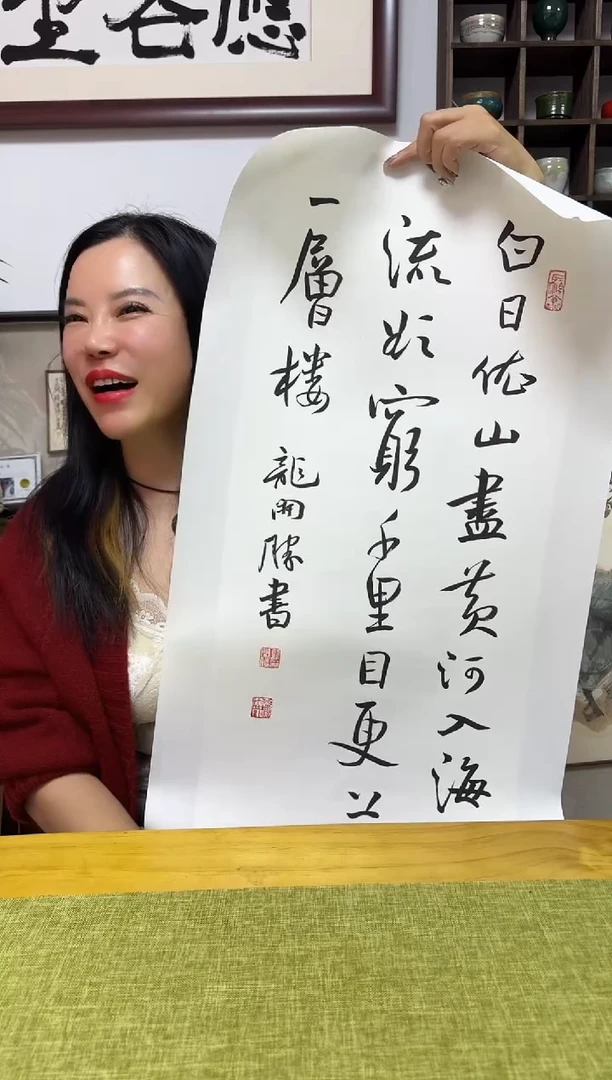 白日依山盡黄河入海
流欲窮千里目更上
一層楼
龍開勝書